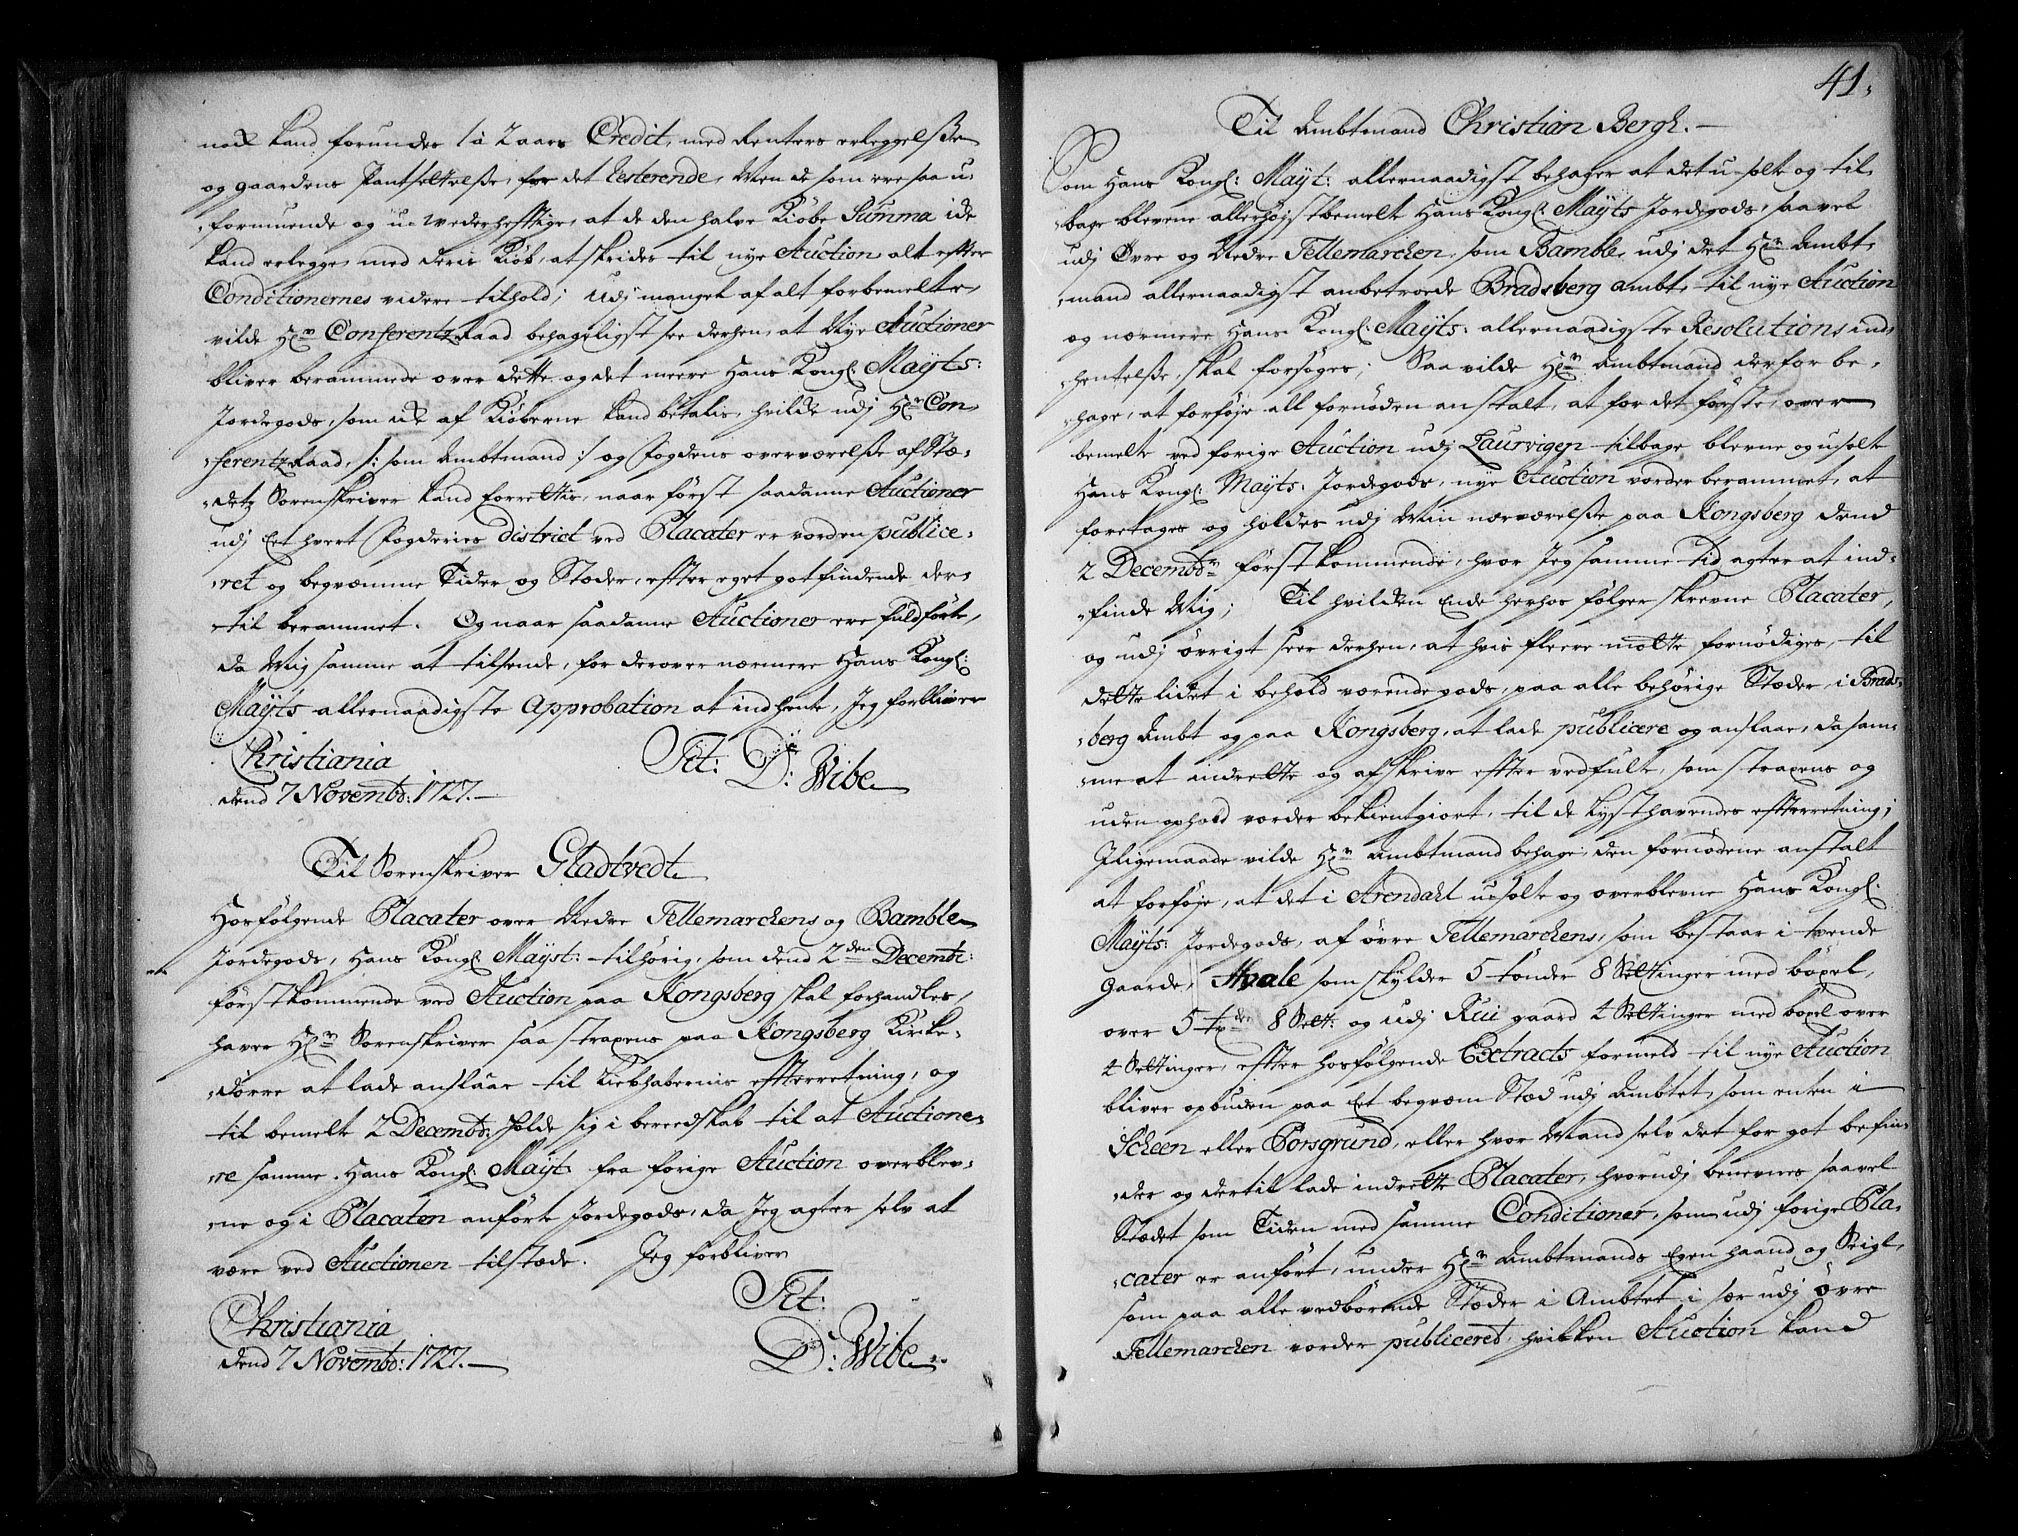 nock kand forundes 1 à 2 aars Credit, med Renters erleggelße
og gaardens Pantsettelße, for det Resterende, Men de som ere saa u-
formuende og u-wederhefftige, at de den halve Kiøbe Summa icke
kand erlegge, med deris Kiøb, at skrides til nye Auction alt efter
Conditionernes videre tilhold; Udj mangel af alt forbemelte,
vilde Hr. Conferentz Raad behageligst see derhen, at Nye Auctioner
bliver berammede over dette, og det meere Hans Kongl: Maÿts:
Jordegods, som icke af Kiøberne kand betalis, hvilcke udj Hr. Con-
ferentz Raad, /: som Ambtmand :/ og Fogdens overværelße af Stæ-
detz Sorenskriver kand forrettis, naar først saadanne Auctioner
udj Eet hvert Fogderies district ved Placater er vorden publice-
ret og beqvæmme Tider og Stæder, effter eget gotfindende der-
til berammet. Og naar saadanne Auctioner ere fuldførte,
da Mig samme at tilsende, for derover nærmere Hans Kongl:
Maÿts allernaadigste Approbation at indhente, Jeg forbliver
Christiania
dend 7 Novembr: 1727.
Tit: D: Wibe
Til Sorenskriver Gladtvedt
Hosfølgende Placater over Nedre Tellemarckens og Bamble
Jordegods, Hans Kongl Maÿst: tilhørig, som dend 2den Decembr:
førstkommende ved Auction paa Kongsberg skal forhandles,
haver Hr. Sorenskriver saa strax paa Kongsberg Kircke-
dørre at lade anslaae til Liebhabernis effterretning, og
til bemelt 2 Decembr: holde sig i bereedskab til at Auctione-
re samme Hans Kongl Maÿt: fra forige Auction overblev-
ne og i Placaten anførte Jordegods, da Jeg agter selv at
være ved Auctionen tilstæde. Jeg forbliver
Tit:
Christiania
dend 7 Novembr: 1727.
D: Wibe
41.
Til Ambtmand Christian Bergh.
Som Hans Kongl: Maÿt: allernaadigst behager at det u-solte og til-
bage blevene allerhøystbemelt Hans Kongl: Maÿts Jordegods, saavel
udj Øvre og Nedre Tellemarcken, som Bamble, udj det Hr. Ambt-
mand allernaadigst anbetroede Bradsberg Ambt, til nye Auction
og nærmere Hans Kongl: Maÿts: allernaadigste Resolutions ind-
hentelße, skal forsøges; Saa vilde Hr. Ambtmand derfor be-
hage, at forføje all fornøden anstalt, at for det første, over
bemelte ved forige Auction udj Laurvigen tilbage blevne og usolte
Hans Kongl: Maÿts: Jordegods, nye Auction vorder berammet, at
foretages og holdes udj Min nærværelße paa Kongsberg dend
2 Decembr. førstkommende, hvor Jeg samme tid agter at ind-
finde Mig; Til hvilcken Ende herhos følger skrevne Placater,
og udj øvrigt seer derhen, at hvis fleere maatte fornødiges, til
dette lidet i behold værende gods, paa alle behørige Stæder, i Brads-
berg Ambt og paa Kongsberg, at lade publicere og anslaae, da sam-
me at indrette og afskrive effter vedfulte, som straxens og
uden ophold vorder bekientgiort, til de Lysthavendes effterretning;
Iligemaade vilde Hr. Ambtmand behage, den fornødene anstalt
at forføje, at det i Arendahl usolte og overblevne Hans Kongl:
Maÿts: Jordegods, af øvre Tellemarckens, som bestaar i tvende
Gaarde, Hvale som skylder 5 tønder 8 Settinger med bøxel,
over 5 tdr. 8 Sett: og udj Rui gaard 4 Settinger med boxel over
4 Settinger, effter hosfølgende Extracts formeld til nye Auction
bliver opbuden paa Eet beqvæm Stæd udj Ambtet, som enten i
Scheen eller Porsgrund, eller hvor Mand selv det for got befin-
der og dertil lade indrette Placater, hvorudj benevnes saavel
Stædet som Tiden med samme Conditioner, som udj forige Pla-
cater er anført, under Hr. Ambtmands Egen haand og Seigl,
som paa alle vedbørende Stæder i Ambtet i sær udj øvre
Tellemarcken vorder publiceret, hvilcken Auction kand